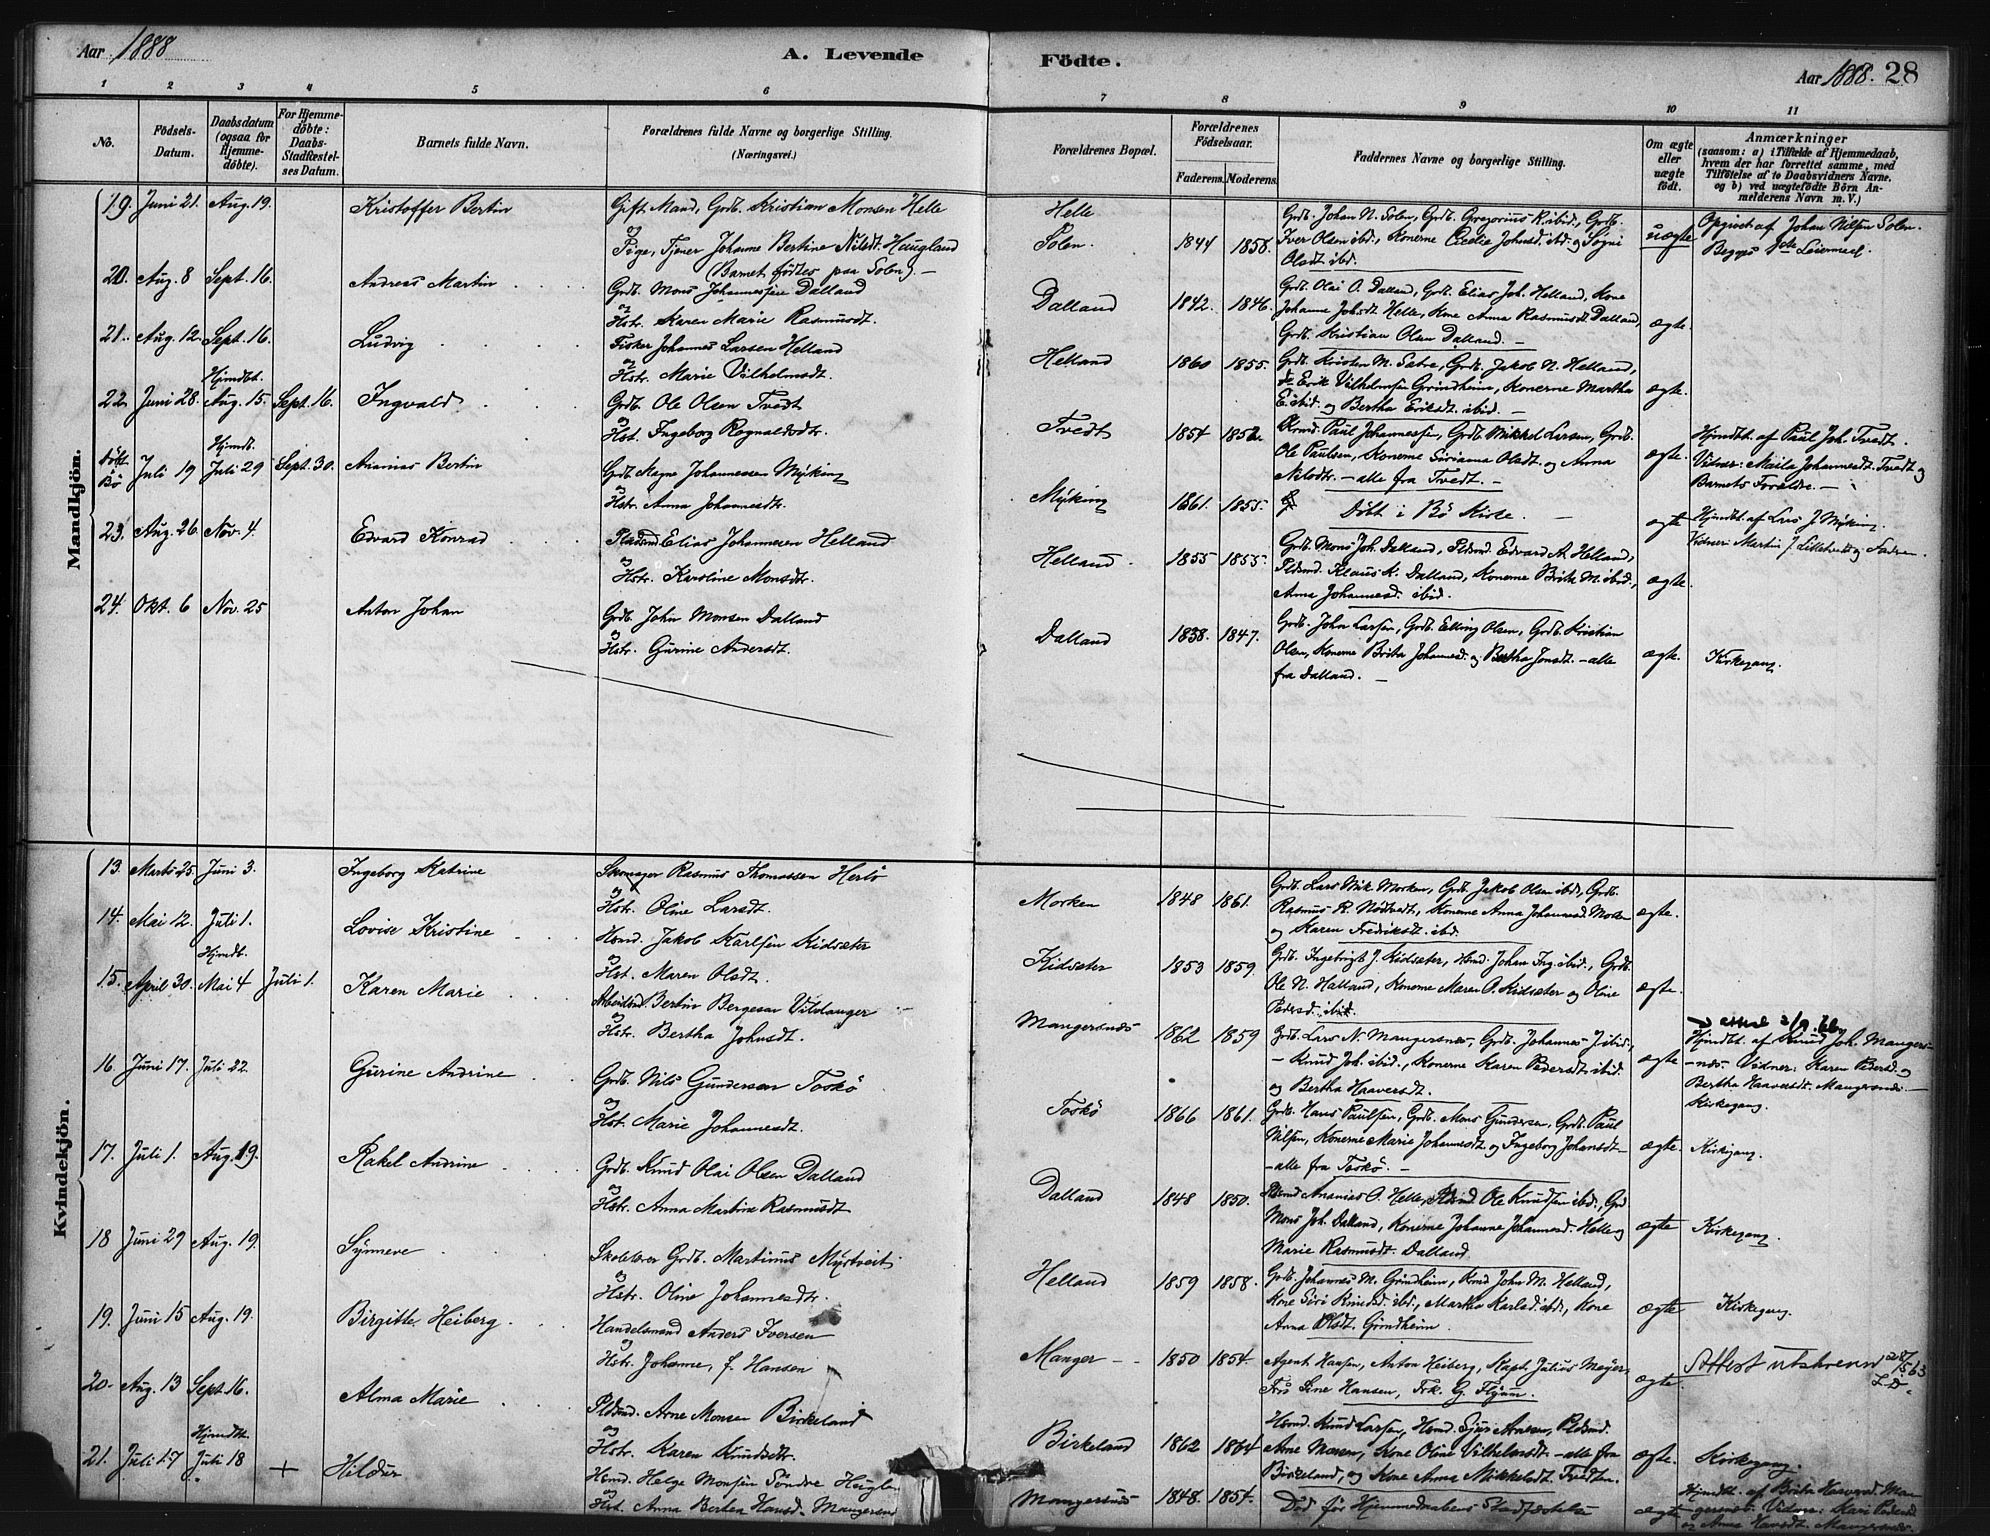 Aar 1888
A. Levende
Födte.
Aar 1888. 28
1 2 3 4 5 6 7 8 9 10 11
No.
Födsels-
Datum.
Daabsdatum
(ogsaa for
Hjemme-
döbte).
For Hjemme-
döbte:
Daabs-
Stadfæstel-
ses Datum.
Barnets fulde Navn.
Forældrenes fulde Navne og borgerlige Stilling.
(Næringsvei.)
Forældrenes Bopæl.
Forældrenes
Födselsaar.
Faderens. Moderens.
Faddernes Navne og borgerlige Stilling.
Om ægte
eller
uægte
födt.
Anmærkninger
(saasom: a) i Tilfælde af Hjemmedaab,
hvem der har forrettet samme, med
Tilföielse af to Daabsvidners Navne.
og b) ved uægtefödte Börn An-
melderens Navn m. V.)
Mandkjön.
19. Juni 21. Aug. 19. Kristoffer Bertin
Gift Mand, Grdb. Kristian Monsen Helle
og
Pige, Tjener Johanne Bertine Nilsdt. Haugland
(Barnet födtes paa Solen). –
Helle
Solen. 1844 1858.
Grdb. Johan N. Solen, Grdb. Gregorius K. ibid., Grdb.
Iver Olsen ibd., Konerne Cecelie Johnsd. ibd. og Sygni
Olsdt. ibd.
uægte
Opgivet af Johan Nilsen Solen.
Begges 1ste Leiermaal.
20. Aug. 8 Sept. 16. Andreas Martin
Grdb. Mons Johannesen Dalland
og
Hstr. Karen Marie Rasmusdt.
Dalland 1842. 1846.
Grdb. Olai O. Dalland, Grdb. Elias Joh. Helland, Kone
Johanne Johsdt. Helle, Kone Anna Rasmusdt. Dalland,
Grdb. Kristian Olsen Dalland. –
ægte.
21. Aug. 12. Sept. 16. Ludvig
Fisker Johannes Larsen Helland
og
Hstr. Marie Vilhelmsdt.
Helland 1860 1855.
Grdb. Kristen M. Satre, Grdb. Jakob N. Helland,
do Erik Vilhelmsen Grindheim, Konerne Martha
E. ibid. og Bertha Eriksdt. ibid. –
ægte.
22. Juni 28. Hjmdbt. Aug. 15. Sept. 16. Ingvald
Grdb. Ole Olsen Tvedt
og
Hst. Ingeborg Rognaldsdtr.
Tvedt 1854 1852.
Paul Johannessen, Grdb. Mikkel Larsen, Grdb.
Ole Paulsen, Konerne Sirianna Olsdt. og Anna
Nilsdtr. – alle fra Tvedt. –
ægte.
Hjmdbt. af Paul Joh. Tvedt.
Vidner: Maila Johannesdt. Tvedt og
Barnets Forældre. –
Döbt
Bö Juli 19 Hjmdt. Juli 29 Sept. 30. Ananias Bertin
Grdb. Aagne Johannesen Myking
og
Hstr. Anna Johannesdtr.
Myking 1861. 1855.
Döbt i Bö Kirke. –
ægte
Hjmdbt. af Lars J. Myking.
Vidner: Martin J. og Faderen.
23. Aug. 26. Nov. 4. Edvard Konrad
Pladsmd. Elias Johannesen Helland
og
Hstr. Karoline Monsdtr.
Helland. 1855 1855.
Grdb. Mons Joh. Dalland, Pldsmd. Edvard A. Helland,
Pldsmd. Klaus K. Dalland, Konerne Brita M. ibid.,
Anna Johannesd. ibid.
ægte.
24. Okt. 6 Nov. 25 Anton Johan
Grdb. John Monsen Dalland
og
Hstr. Gurine Andersdt.
Dalland 1838. 1847.
Grdb. John Larsen, Grdb. Elling Olsen, Grdb. Kristian
Olsen, Konerne Brita Johannesd. og Bertha Jonsdt. – alle
fra Dalland. –
ægte.
Kirkegang.
Kvindekjön.
13. Marts 25. Juni 3. Ingeborg Katrine
Skomager Rasmus Thomassen Hertö
og
Hstr. Oline Larsdt.
Morken 1848 1861.
Grdb. Lars Nik. Morken, Grdb. Jakob Olsen ibd., Grdb.
Rasmus R. Nödtvedt, Konerne Anna Johannesd. Morken
og Karen Fredriksdt. ibid.
ægte.
14. Mai 12. Juli 1. Lovise Kristine
Hsmd. Jakob Karlsen Kidsæter
og
Hst. Maren Olsdt.
Kidsæter 1853 1859.
Grdb. Ingebrigt J. Kidsæter, Hsmd. Johan Ing. ibid., Grdb.
Ole N. Halland, Konerne Maren O. Kidsæter og Oline
Pedersd. ibid.
ægte.
15. April 30. Hjmdt. Mai 4 Juli 1. Karen Marie
Arbeidsmd. Bertin Bergesen Vildanger
og
Hstr. Bertha Johnsdt.
Mangersnes 1862 1859
Grdb. Lars N. Mangersnes, Grdb. Johannes J. ibid.,
– Knud Joh. ibid., Konerne Karen Pedersdt. ibid.
og Bertha Haaversdt.
ægte
Hjmdbt. af Knud Joh. Mangers-
-nes. Vidner: Karen Pedersd. og
Bertha Haaversdt. Mangersnes. –
Kirkegang.
16. Juni 17. Juli 22. Gurine Andrine
Grdb. Nils Gundersen Toskö
og
Hst. Marie Johannesdt.
Toskö 1866 1861.
Grdb. Hans Paulsen, Grdb. Mons Gundersen, Grdb. Paul
Nilsen, Konerne Marie Johannesdt. og Ingeborg Johansdt. –
– alle fra Toskö. –
ægte.
Kirkegang.
17. Juli 1. Aug. 19. Rakel Andrine
Grdb. Knud Olai Olsen Dalland
og
Hstr. Anna Martine Rasmusdt.
Dalland 1848 1850.
Ananias O. Helle, Ole Knudsen ibd., Grd.
Mons Joh. Dalland, Konerne Johanne Johannesd. Helle og
Marie Rasmusdt. Dalland.
ægte
Kirkegang.
18 Juni 29 Aug. 19. Synneve
Skolelærer Grdb. Martinus Myrtveit
og
Hstr. Oline Johannesdtr.
Helland 1859 1858.
Grdb. Johannes M. Grindheim, John M. Helland,
Kone Siri Knudsd. ibd., Martha Karlsd. ibd., Kone
Anna Olsdt. Grindheim.
ægte
Kirkegang.
19. Juni 15 Aug. 19. Birgitte Heiberg.
Handelsmand Anders Iversen
og
Hstr. Johanne, f. Hansen
Manger – 1850 1854.
Agent Hansen, Anton Heiberg, Kapt. Julius Meyer,
Frö. Line Hansen, Frk. G. Flyum.
ægte.
Attest utskrevn 28/5 63
20. Aug. 13 Sept. 16. Alma Marie
Pldsmd. Arne Monsen Birkeland
og
Hstr. Karen Knudsdtr.
Birkeland 1862 1864
Hsmd. Knud Larsen, Hsmd. Sjur Arnesen, Pldsmd.
Arne Kone Oline Vilhelmsdt – alle fra
Birkeland, og Kone Anna Mikkelsdt. Tvedten.
ægte.
Kirkegang.
21. Juli 17 Hjmdt. Juli 18 + Hildur
Hsmd. Helge Monsen Söndre
og
Hst. Anna Berthea Hansd. Mangersnes
Mangersnes 1848. 1854.
Död för Hjemmedaabens Stadfæstelse
ægte
Hjmdbt. af Brita Haaversd. Man-
gersnes. Vidner: Kari Pedersd.
og Anna Hansdt. Mangersnes.